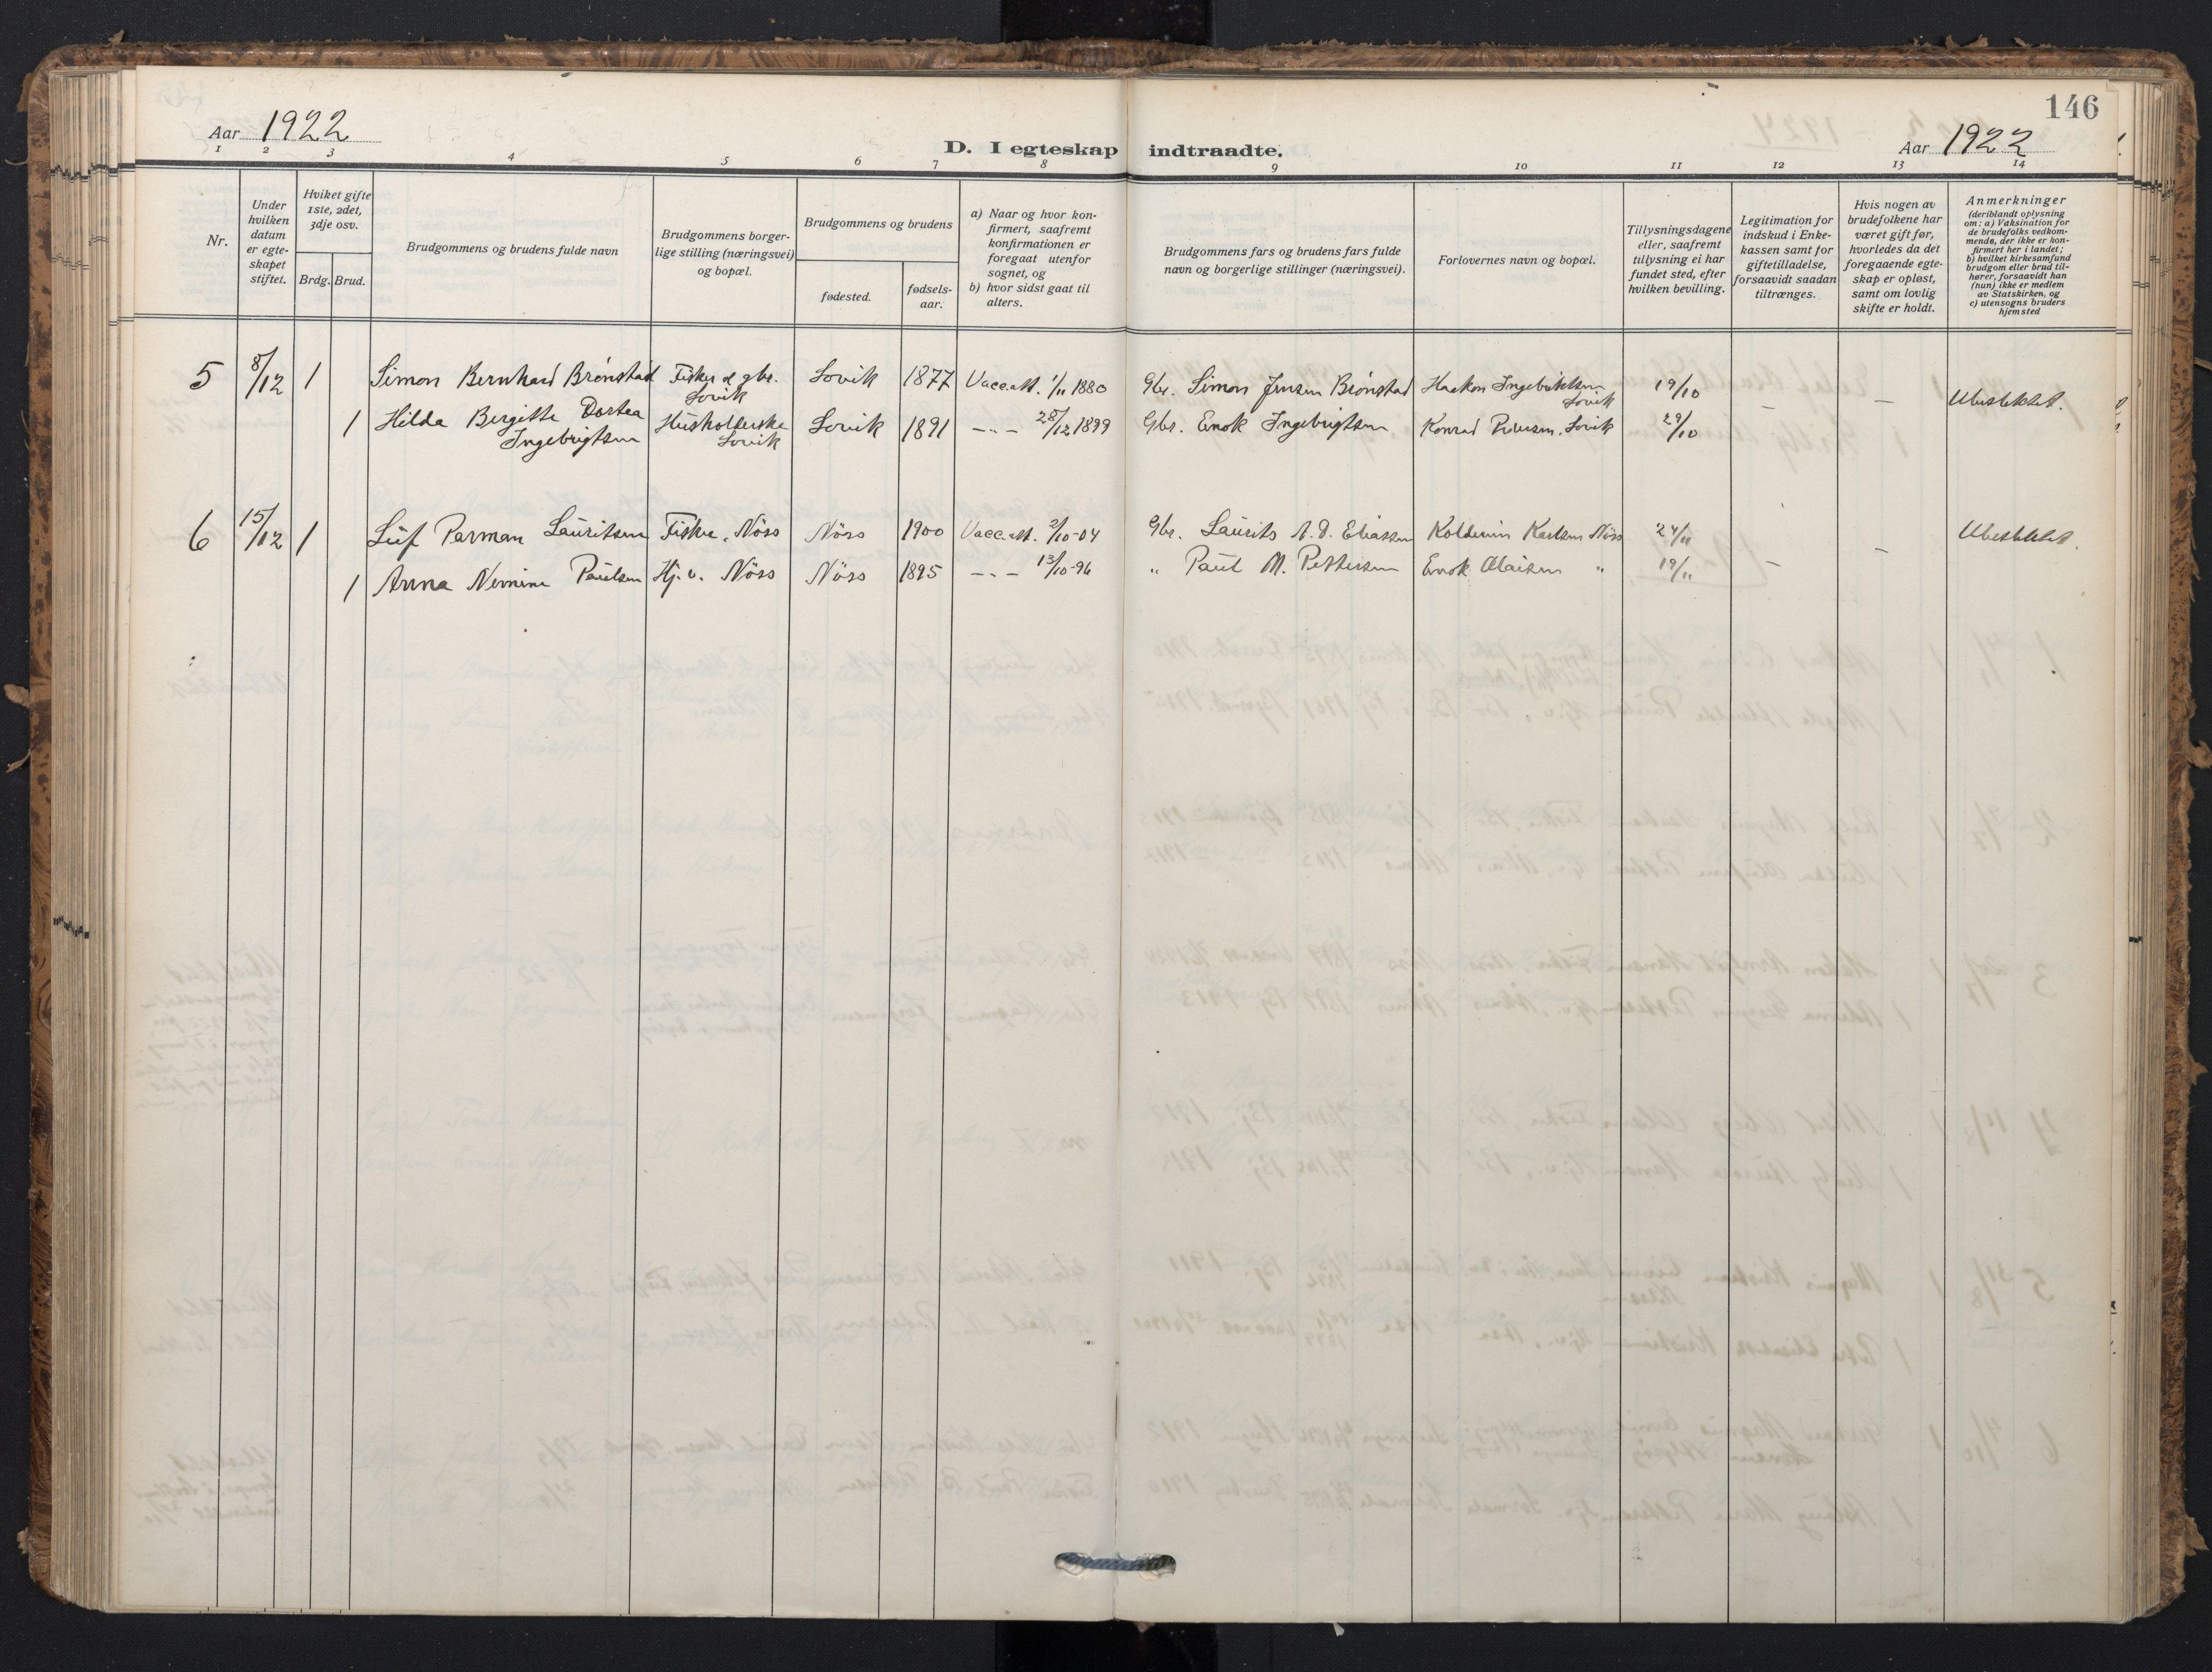 146
Aar 1922
D. I egteskap indtraadte.
Aar 1922
1 2 3 4 5 6 7 8 9 10 11 12 13 14
Nr.
Under hvilken datum er egte-skapet stiftet.
Hviket gifte 1ste, 2det, 3dje osv.
Brdg. Brud.
Brudgommens og brudens fulde navn
Brudgommens borger-lige stilling (næringsvei) og bopæl.
Brudgommens og brudens
fødested.
fødsels-aar.
a) Naar og hvor kon-firmert, saafremt konfirmationen er foregaat utenfor sognet, og
b) hvor sidst gaat til alters.
Brudgommens fars og brudens fars fulde navn og borgerlige stillinger (næringsvei).
Forlovernes navn og bopæl.
Tillysningsdagene eller, saafremt tillysning ei har fundet sted, efter hvilken bevilling.
Legitimation for indskud i Enke-kassen samt for giftetilladelse, forsaavidt saadan tiltrænges.
Hvis nogen av brudefolkene har været gift før, hvorledes da det foregaaende egte-skap er opløst, samt om lovlig skifte er holdt.
Anmerkninger
(deriblandt oplysning om: a) Vaksination for de brudefolks vedkom-mende, der ikke er kon-firmert her i landet; b) hvilket kirkesamfund brudgom eller brud til-hører, forsaavidt han (hun) ikke er medlem av Statskirken, og c) utensogns bruders hjemsted
5 8/12 1 Simon Bernhard Brønstad Fisker & gbr. Lovik Lovik 1877 Vacc.att. 1/11 1880 Gbr. Simon Jensen Brønstad Haakon Ingebriktsen Lovik 19/10 Ubeslektet.
1 Hilda Bergitte Dortea Ingebrigtsen Husholderske Lovik Lovik 1891 -"- 28/12 1899 Gbr. Enok Ingebrigtsen Konrad Lovik 29/10
6 15/12 1 Leif Parman Lauritsen Fisker, Nöss Nöss 1900 Vacc.att. 2/10-04 Gbr. Laurits A. D. Eliassen Koldevin Karlsen Nöss 24/11 Ubeslektet.
1 Anna Nemine Paulsen Hj.v. Nöss Nöss 1895 -"- 13/10-96 " Paul M. Pettersen Enok Olaisen " 19/11